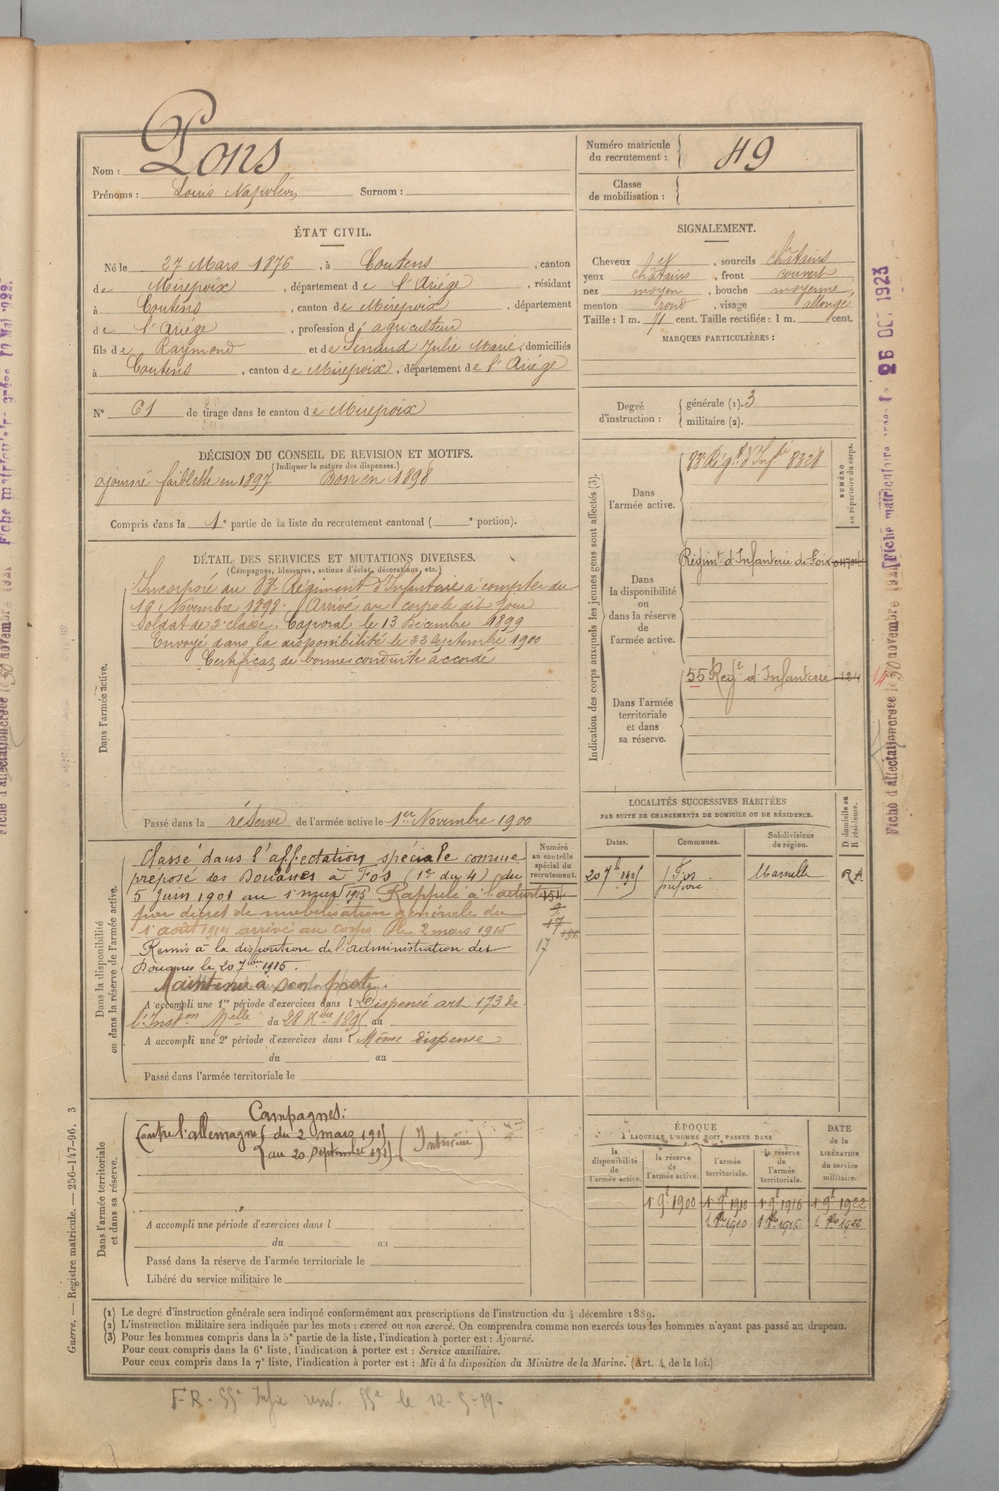 Nom : Pons
Prénoms : Louis Napoléon Surnom :
Numéro matricule du recrutement : 49
Classe de mobilisation :
ÉTAT CIVIL.
Né le 27 Mars 1876, à Coutens, canton
de Mirepoix, département de l'Ariège, résidant
à Coutens, canton de Mirepoix, département
de l'Ariège, profession d'agriculteur
fils de Raymond et de Sinaud Julie Marie, domiciliés
à Coutens, canton de Mirepoix, département de l'Ariège
N° 61 de tirage dans le canton de Mirepoix
SIGNALEMENT.
Cheveux et, sourcils châtains
yeux châtains, front couvert
nez moyen, bouche moyenne,
menton rond, visage allongé
Taille : 1 m. 71 cent. Taille rectifiée : 1 m. cent.
MARQUES PARTICULIÈRES :
Degré d'instruction : générale (1). 3
militaire (2).
DÉCISION DU CONSEIL DE REVISION ET MOTIFS.
(Indiquer la nature des dispenses.)
ajourné faiblesse en 1897 Bon en 1898
Compris dans la 1e partie de la liste du recrutement cantonal ( e portion).
DÉTAIL DES SERVICES ET MUTATIONS DIVERSES.
(Campagnes, blessures, actions d'éclat, décorations, etc.)
Dans l'armée active.
Incorporé au 88e Régiment d'Infanterie à compter du
19 Novembre 1898. Arrivé au corps le dit jour
Soldat de 2e classe. Caporal le 13 Décembre 1899
Envoyé dans la disponibilité le 22 Septembre 1900
Certificat de bonne conduite accordé
Passé dans la réserve de l'armée active le 1er Novembre 1900
Indication des corps auxquels les jeunes gens sont affectés (3).
NUMÉRO au répertoire du corps.
Dans l'armée active. 88e Régt d'Infie 8328
Dans la disponibilité ou dans la réserve de l'armée active. Régint d'Infanterie de Foix
Dans l'armée territoriale et dans sa réserve. 55 Regt d'Infanterie
LOCALITÉS SUCCESSIVES HABITÉES
PAR SUITE DE CHANGEMENTS DE DOMICILE OU DE RÉSIDENCE.
Dates. Communes. Subdivisions de région. D domicile ou R résidence.
Fos Marseille
Dans la disponibilité ou dans la réserve de l'armée active.
Numéro au contrôle spécial du recrutement.
Classé dans l'affectation spéciale comme
préposé des Douanes à Fos (1er du 4) du
5 Juin 1901 au 1 mars 1915 Rappelé à l'activité
par décret de mobilisation générale du
1er août 1914 arrivé au Corps le 2 mars 1915
Remis à la disposition de l'administration des
Douanes le 20 7bre 1915.
Maintenu à son poste.
A accompli une 1re période d'exercices dans l Dispensé art 173 de
l'Inston Melle du 28 au
A accompli une 2e période d'exercices dans l Même dispense
du au
Passé dans l'armée territoriale le
Dans l'armée territoriale et dans sa réserve.
Campagnes :
Contre l'allemagne du 2 mars 1915 (Intérieur)
au 20 septembre 1915
A accompli une période d'exercices dans l
du au
Passé dans la réserve de l'armée territoriale le
Libéré du service militaire le
ÉPOQUE
À LAQUELLE L'HOMME DOIT PASSER DANS
DATE de la LIBÉRATION du service militaire.
la disponibilité de l'armée active. la réserve de l'armée active. l'armée territoriale. la réserve de l'armée territoriale.
1900 1910 1916 1922
1910 1916 1922
(1) Le degré d'instruction générale sera indiqué conformément aux prescriptions de l'instruction du 4 décembre 1889.
(2) L'instruction militaire sera indiquée par les mots : exercé ou non exercé. On comprendra comme non exercés tous les hommes n'ayant pas passé au drapeau.
(3) Pour les hommes compris dans la 5e partie de la liste, l'indication à porter est : Ajourné.
Pour ceux compris dans la 6e liste, l'indication à porter est : Service auxiliaire.
Pour ceux compris dans la 7e liste, l'indication à porter est : Mis à la disposition du Ministre de la Marine. (Art. 4 de la loi.)
Guerre. — Registre matricule. — 256-147-96. 3
26 OCT 1923